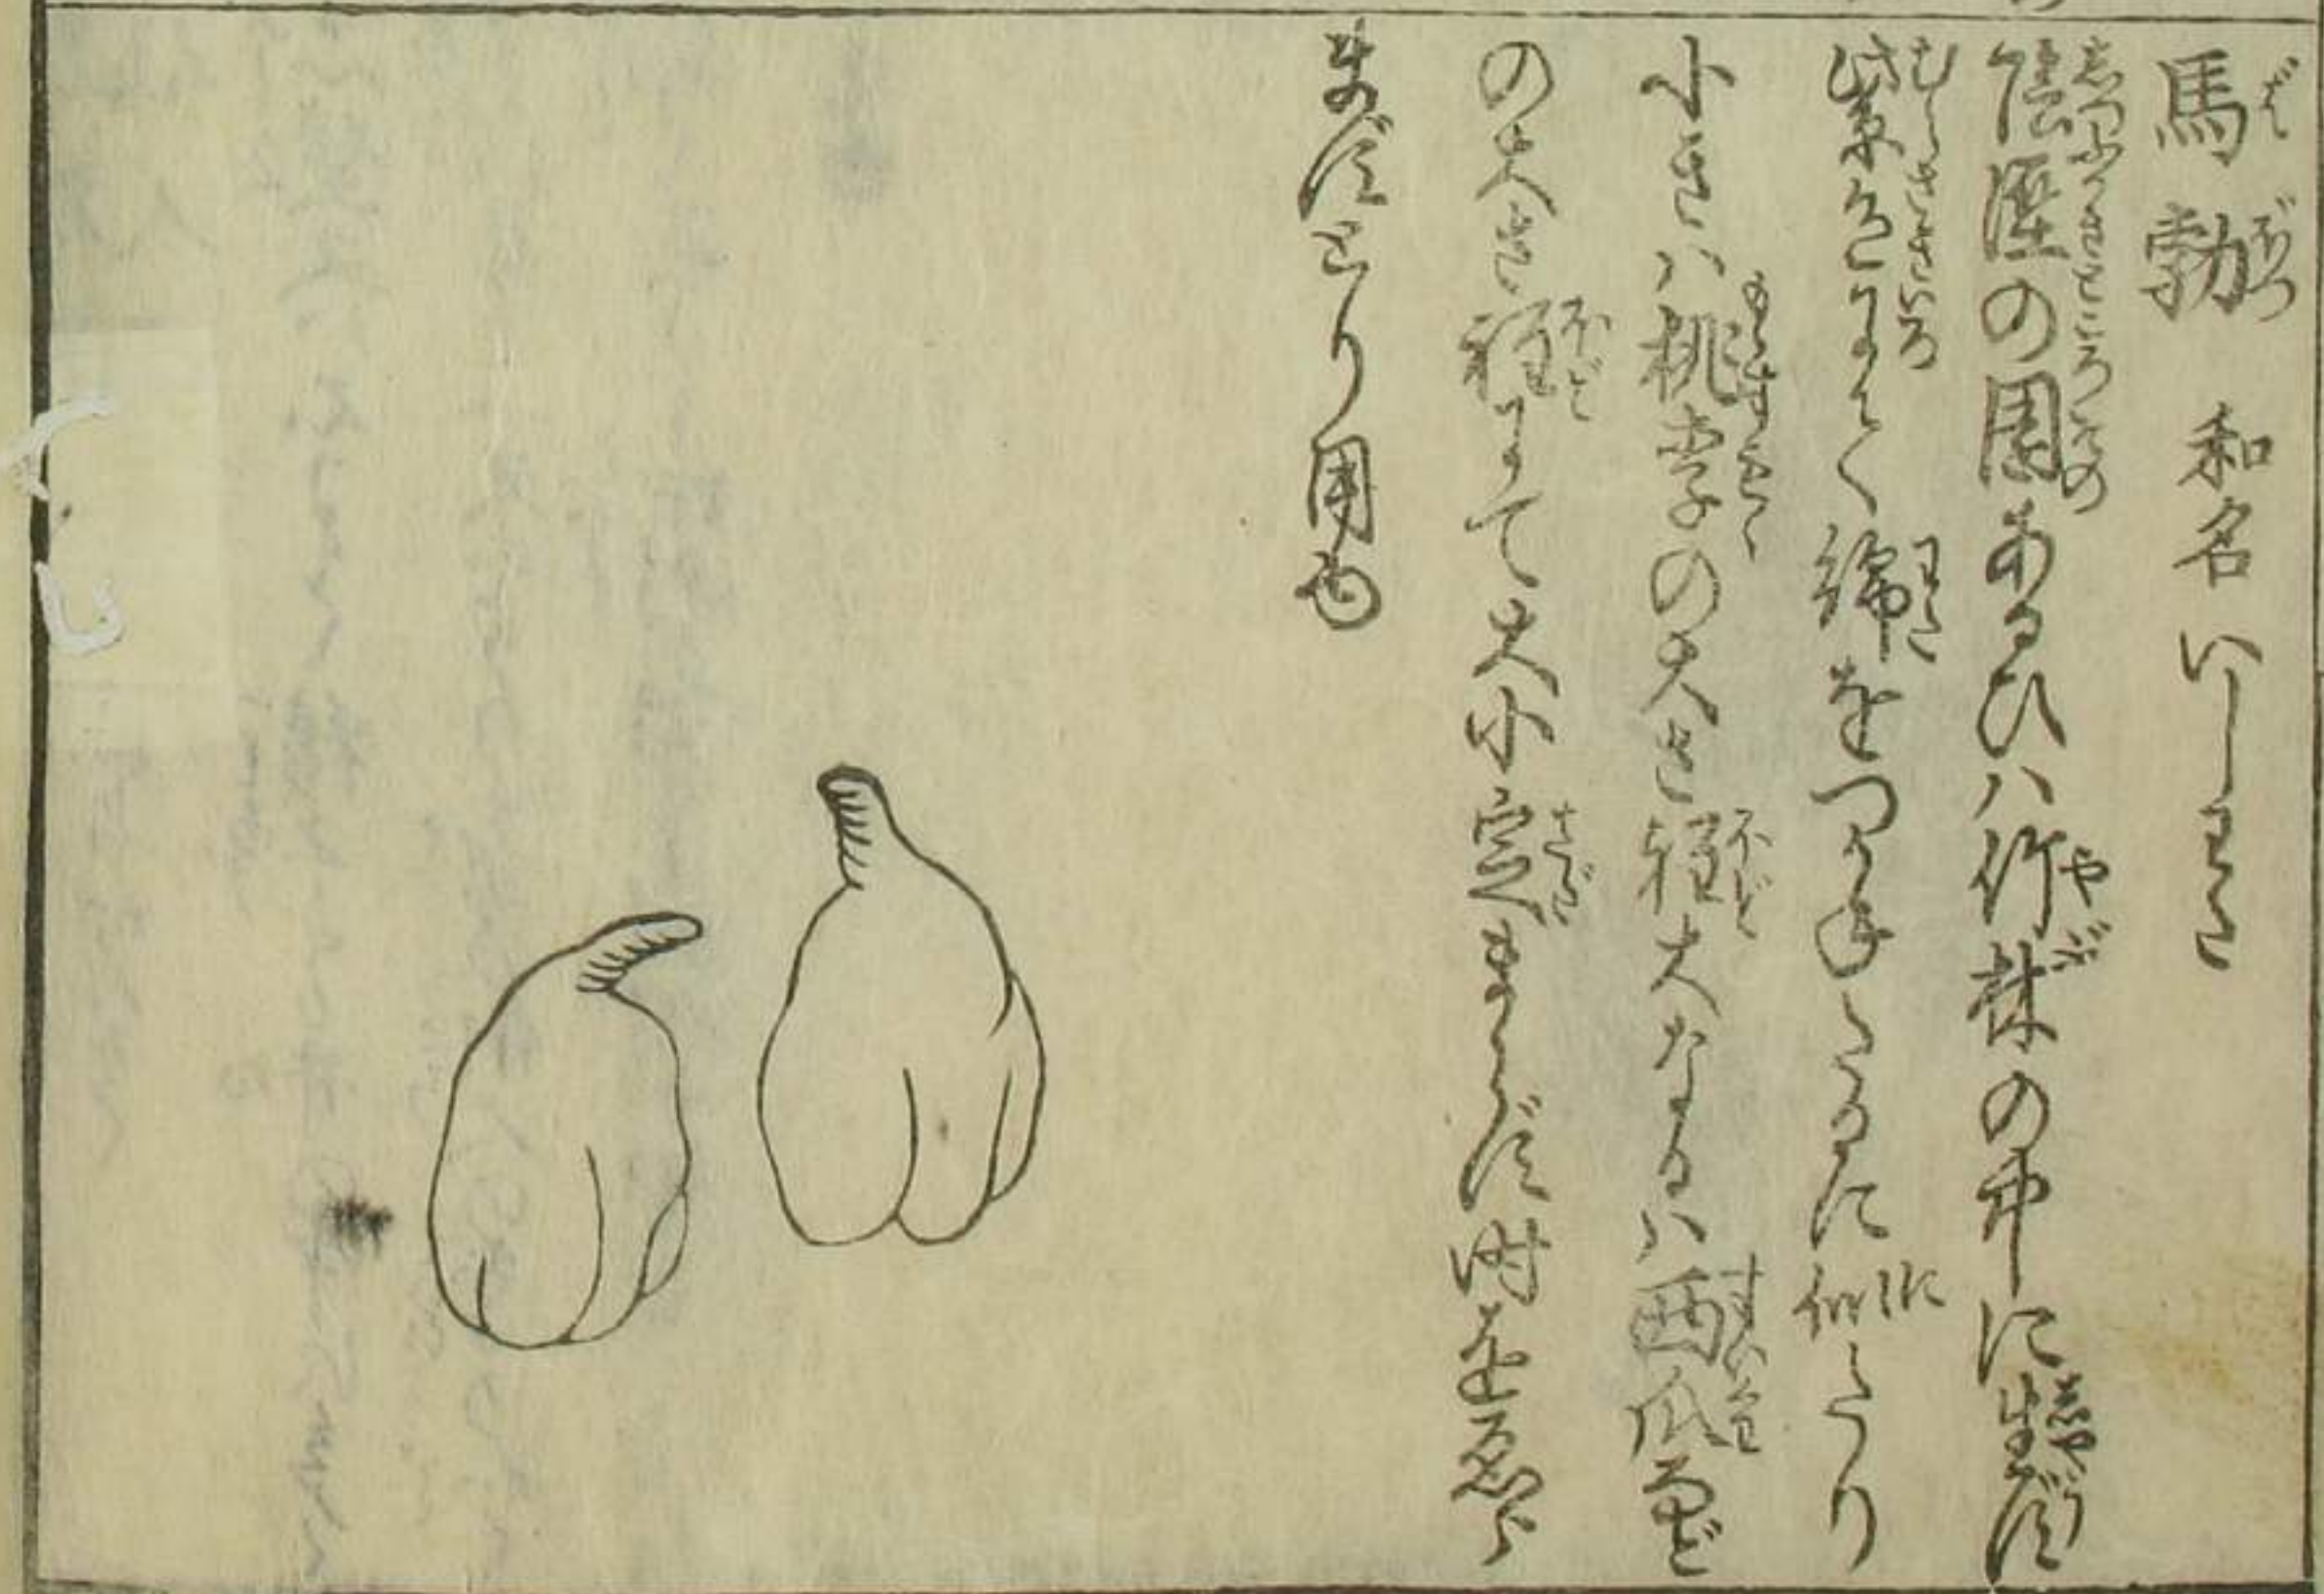 馬勃　和名いしわた
陰湿の園あるひハ竹林の中に生ず
紫色にして綿をつかねたるに似たり
小きハ桃李の大さ程大なるハ西瓜など
の大さ程にて大小定まらず時をゑら
まずとり用ゆ